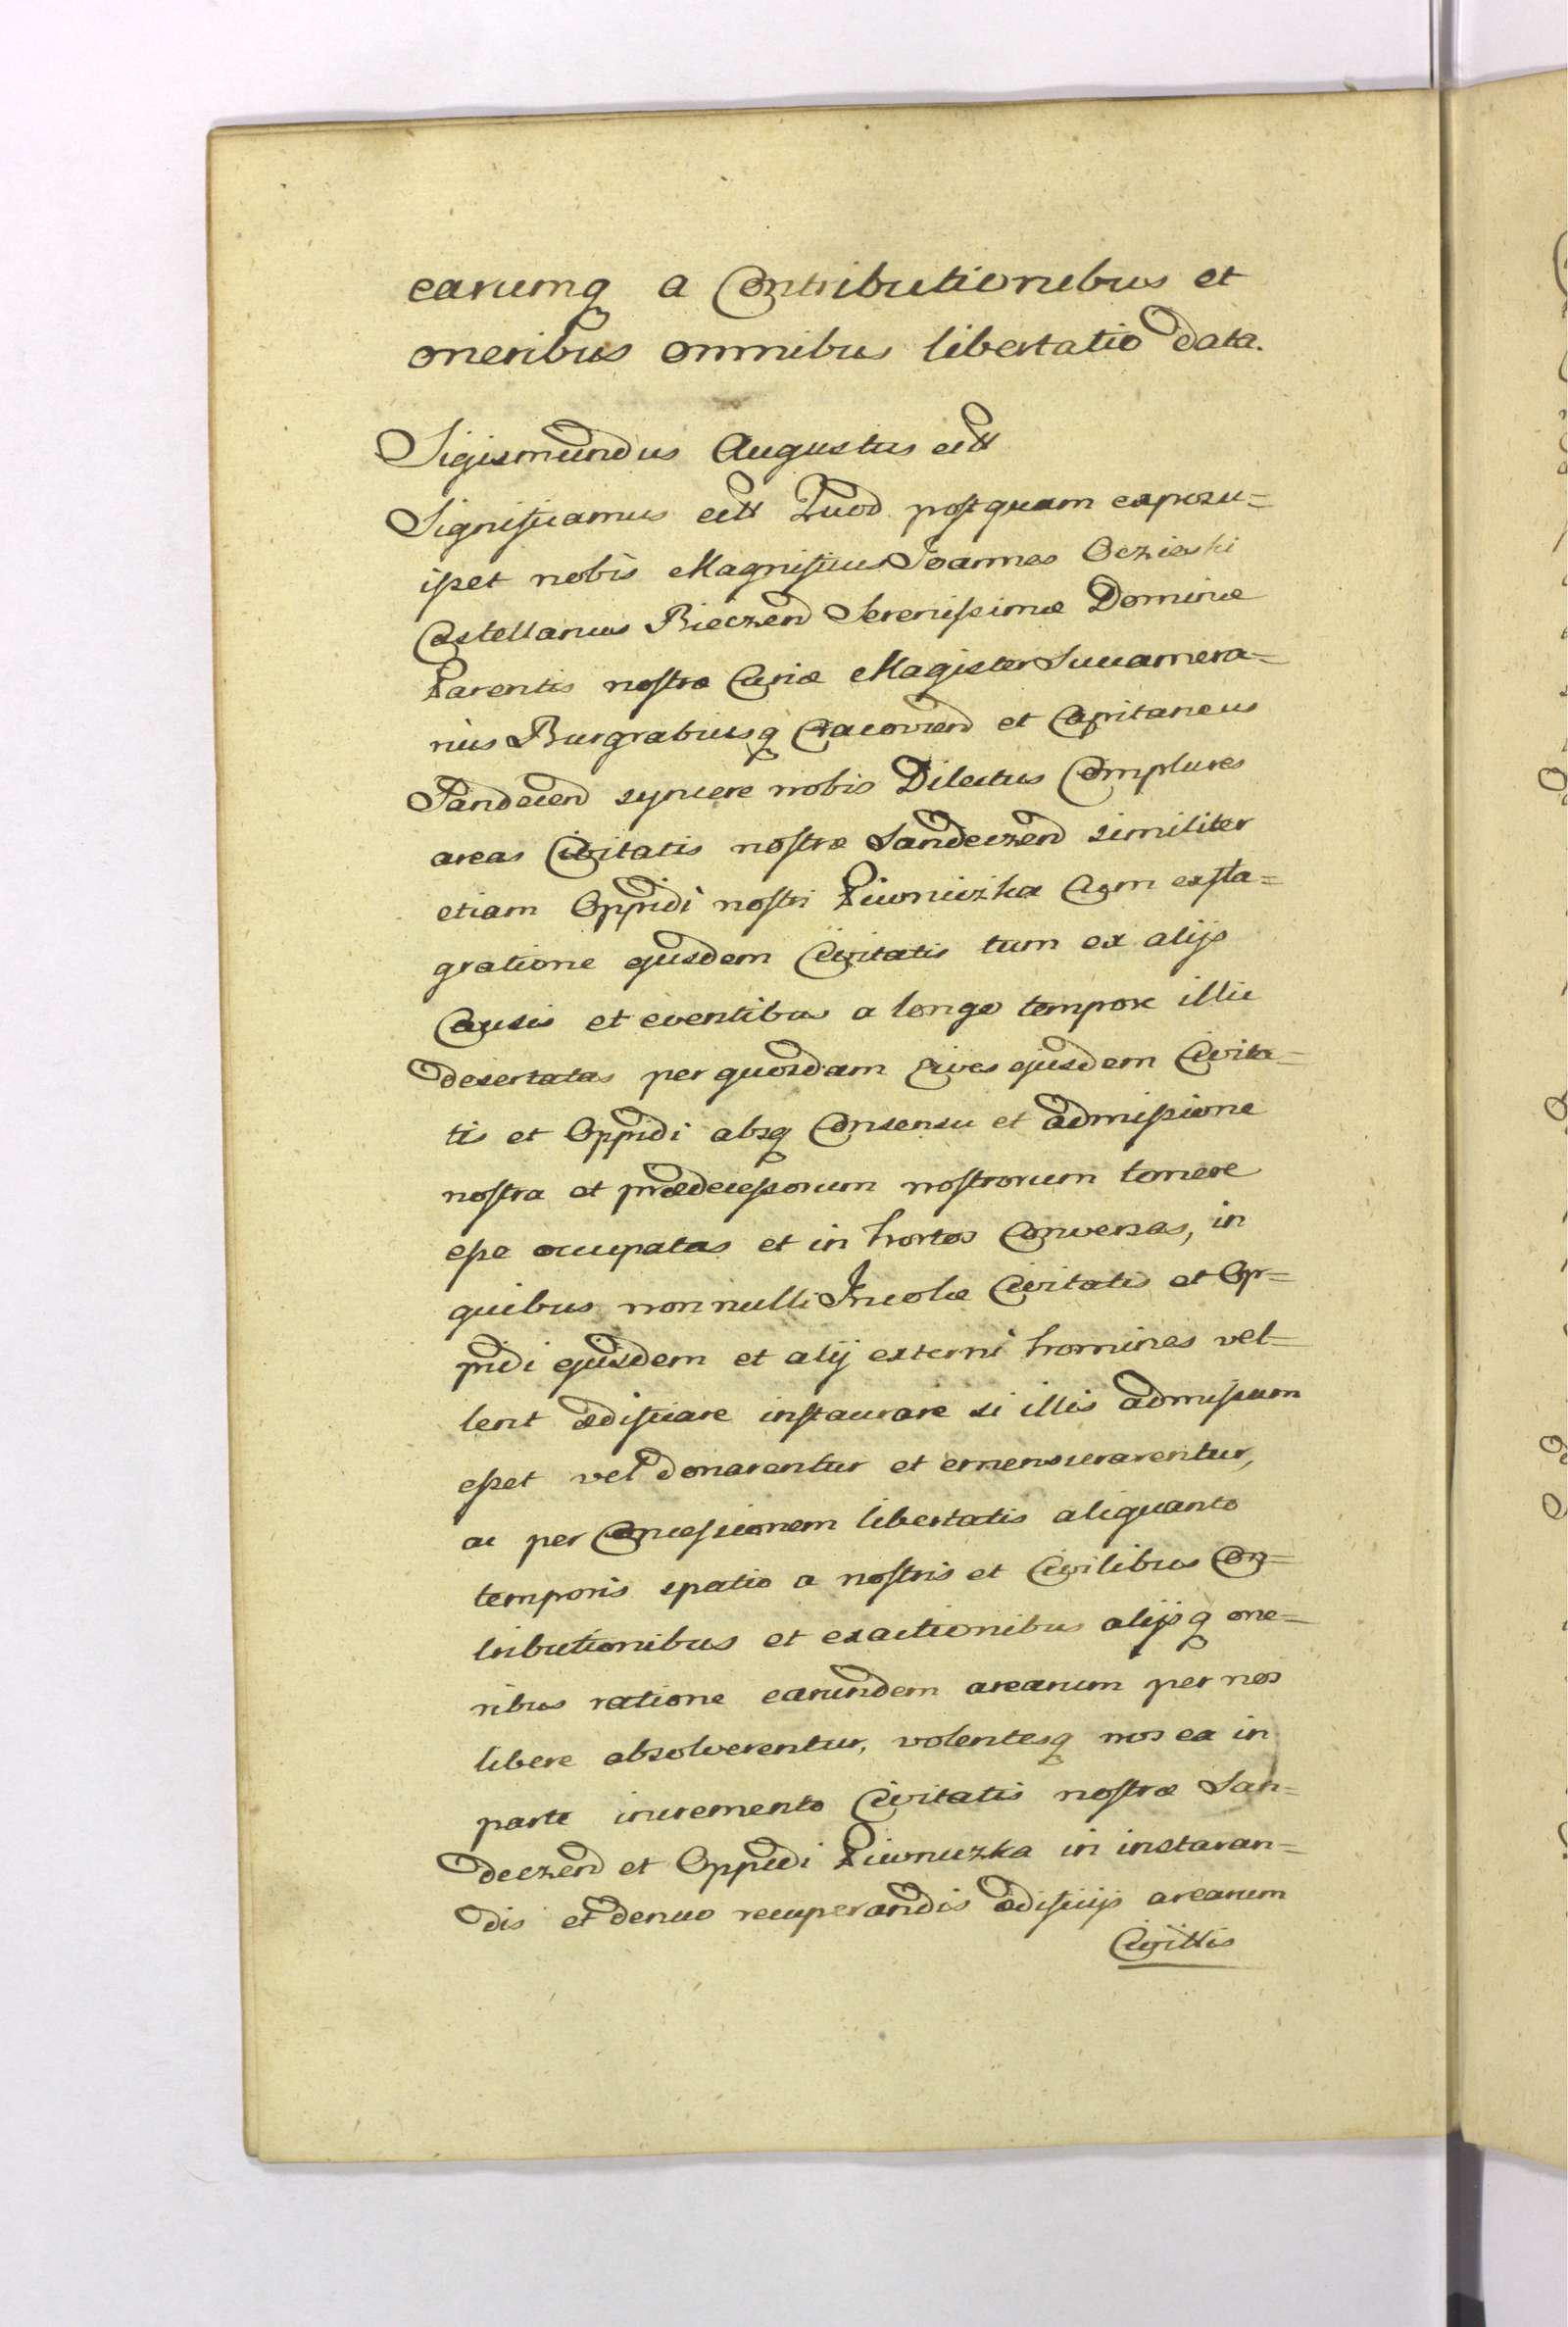 earumq a Contributionibus et
oneribus omnibus libertatio data.
Sigismundus Augustus ettt
Significamus ettt Quod postquam exposu=
isset nobis Magnificus Joannes Oczieski
Castellanus Bieczen Serenissimæ Dominæ
Parentis nostræ Curiæ Magister Succamera=
rius Burgrabiusq Cracovien et Capitaneus
Sandecen syncere nobis Dilectus Complures
areas Civitatis nostræ Sandeczen similiter
etiam Oppidi nostri Piwniczka Cum exfla=
gratione ejusdem Civitatis tum ex alijs
Causis et eventibus a longo tempore illic
desertatas per quosdam Cives ejusdem Civita=
tis et Oppidi absq Consensu et admissione
nostra et prædecessorum nostrorum temere
esse occupatas et in hortos Conversas, in
quibus nonnulli Incolæ Civitatis et Op=
pidi ejusdem et alij externi homines vel=
lent ædificare instaurare si illis admissum
esset vel donarentur et emensurarentur,
ac per Concessionem libertatis aliquanto
temporis spatio a nostris et Civilibus Con=
tributionibus et exactionibus alijsq one=
ribus ratione earundem arearum per nos
libere absolverentur, volentesq nos ea in
parte incremento Civitatis nostræ San=
deczen et Oppidi Piwniczka in instaran=
dis et denuo recuperandis ædificijs arearum
Civittis